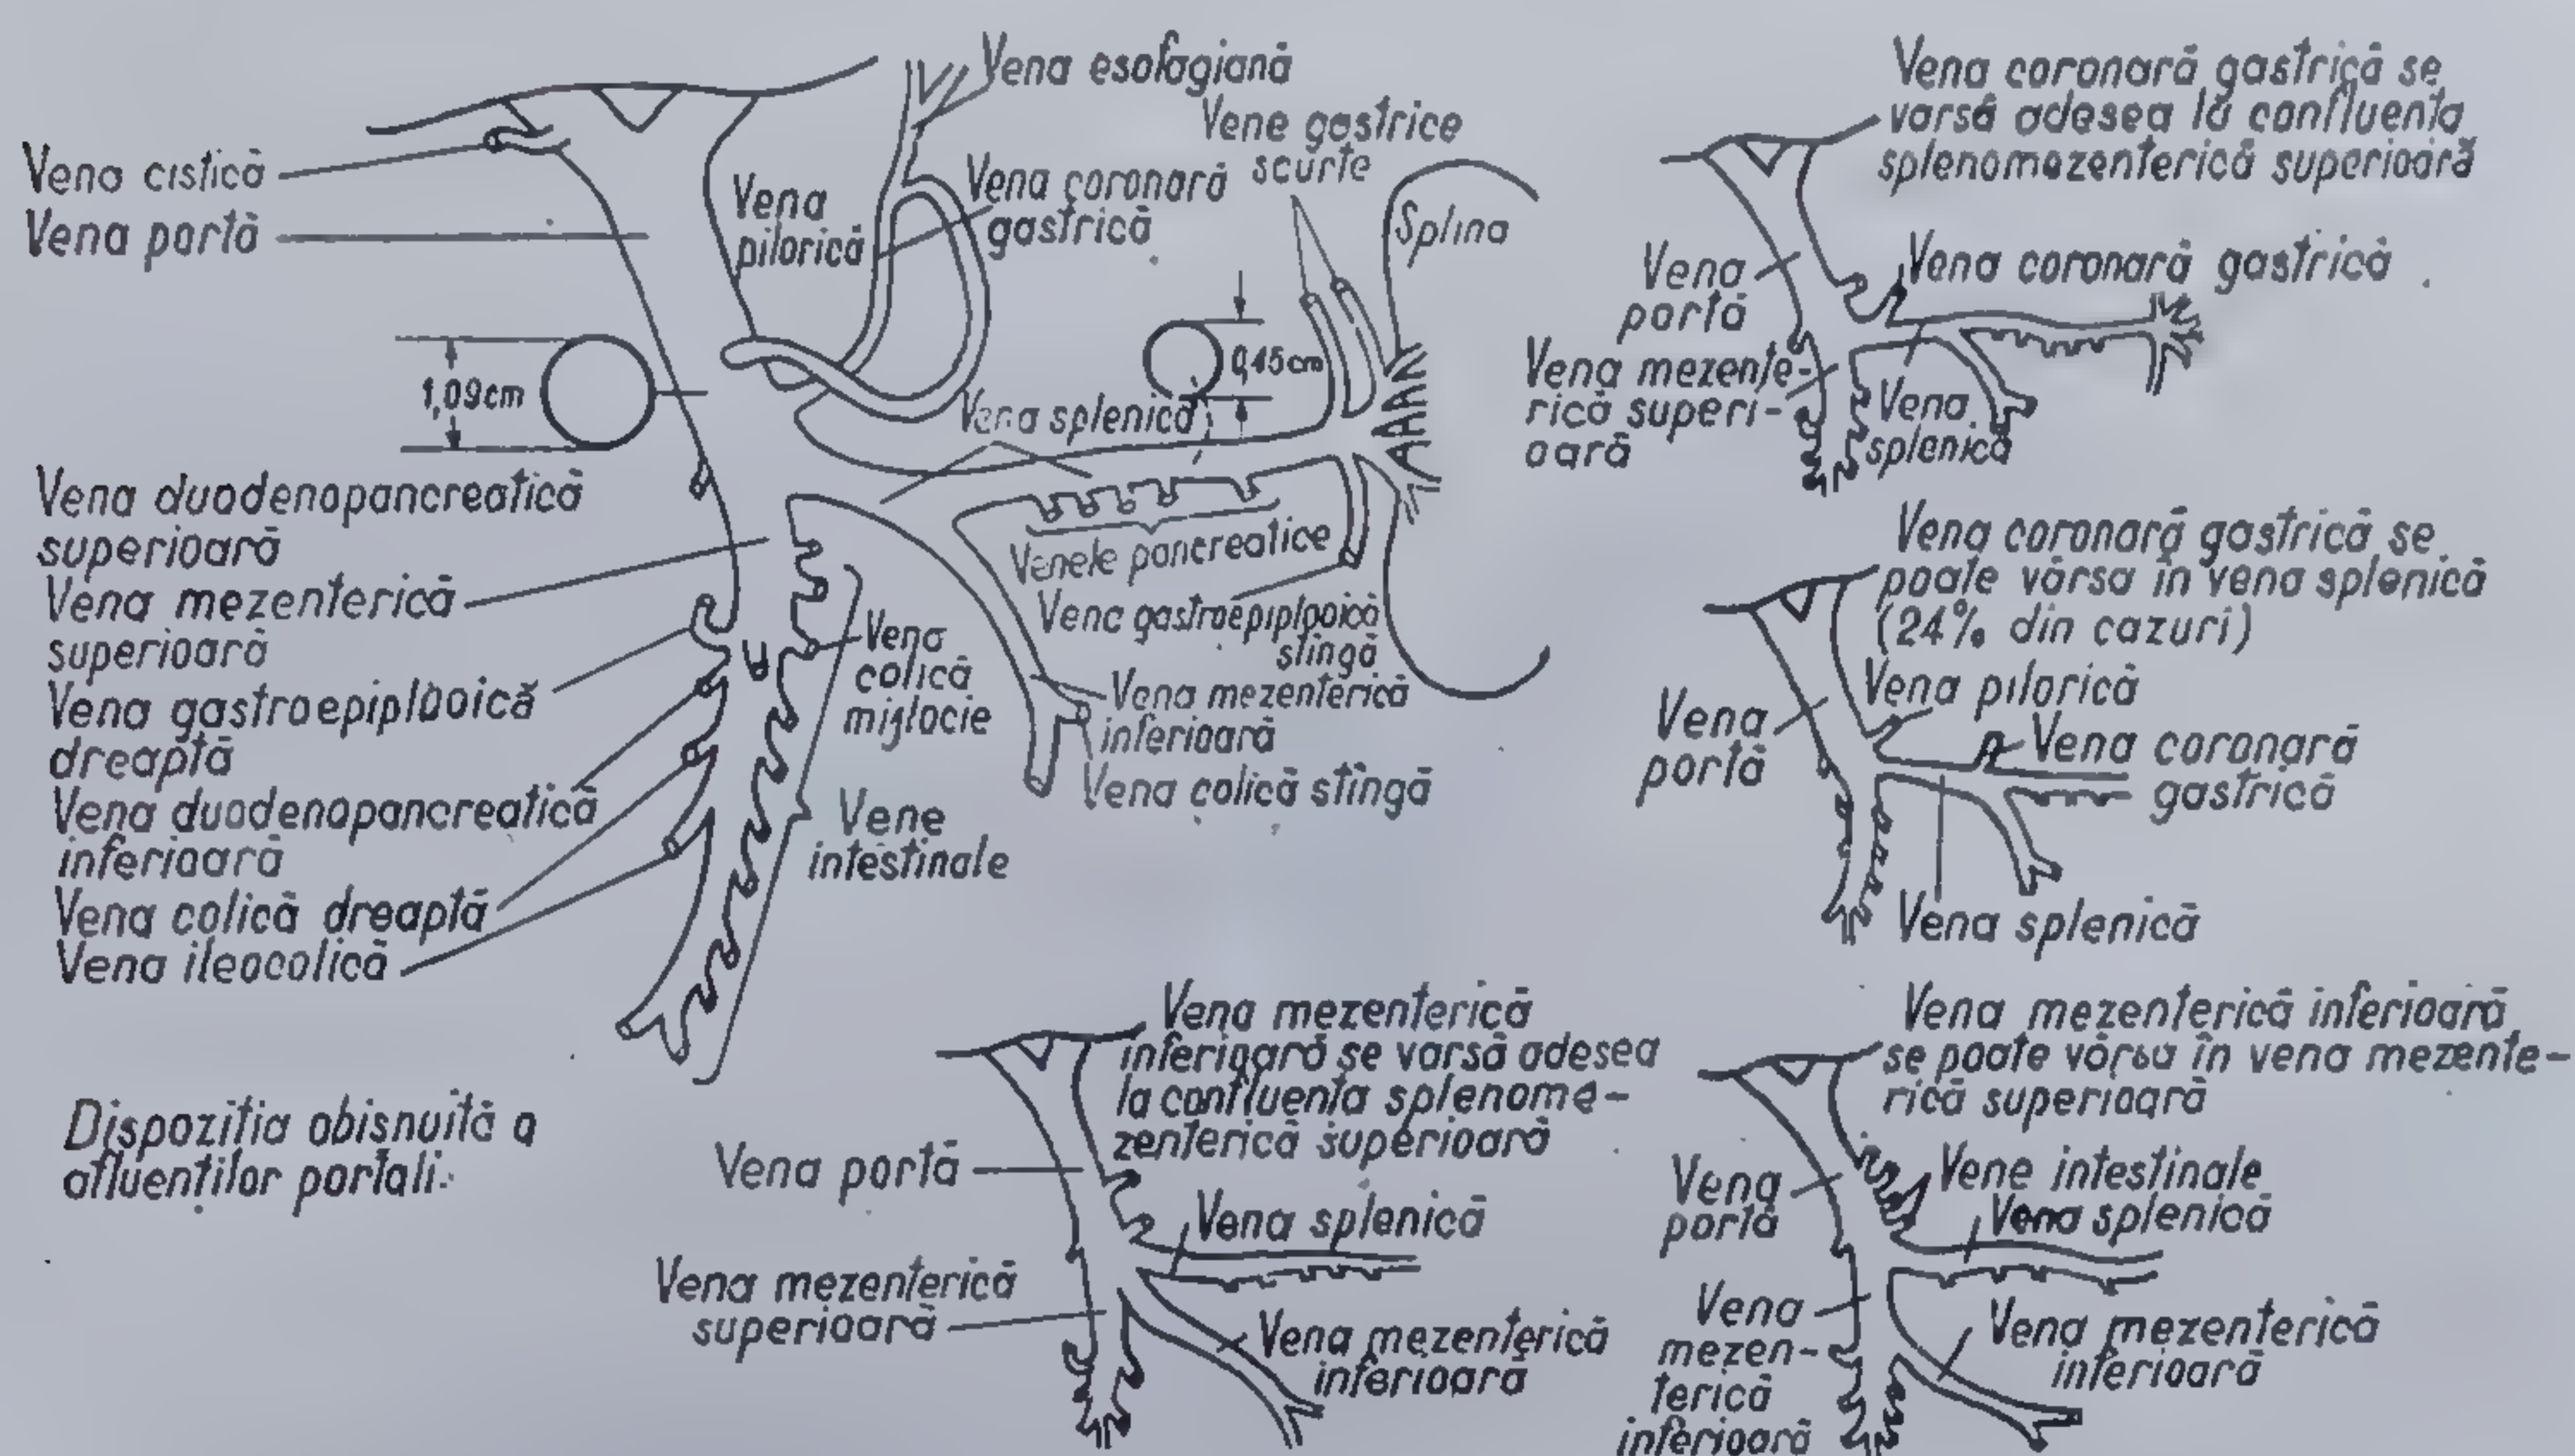 Vena esofagiană
Vene gastrice
scurte
Vena cistică
Vena portă
Vena
pilorică
Vena coronară
gastrică
Splina
1,09cm
0,45cm
Vena splenică
Vena duodenopancreatică
superioară
Vena mezenterică
superioară
Vena gastroepiplooică
dreaptă
Vena duodenopancreatică
inferioară
Vena colică dreaptă
Vena ileocolică
Venele pancreatice
Vena gastroepiplooică
stîngă
Vena
colică
mijlocie
Vena mezenterică
inferioară
Vena colică stîngă
Vene
intestinale
Dispoziția obișnuită a
afluenților portali.
Vena coronară gastrică se
varsă adesea la confluența
splenomezenterică superioară
Vena
portă
Vena coronară gastrică
Vena mezente-
rică superi-
oară
Vena
splenică
Vena coronară gastrică se
poate vărsa în vena splenică
(24% din cazuri)
Vena pilorică
Vena
portă
Vena coronară
gastrică
Vena splenică
Vena mezenterică
inferioară se varsă adesea
la confluența splenome-
zenterică superioară
Vena portă
Vena splenică
Vena mezenterică
superioară
Vena mezenterică
inferioară
Vena mezenterică inferioară
se poate vărsa în vena mezente-
rică superioară
Vena
portă
Vene intestinale
Vena splenică
Vena
mezen-
terică
inferioară
Vena mezenterică
inferioară